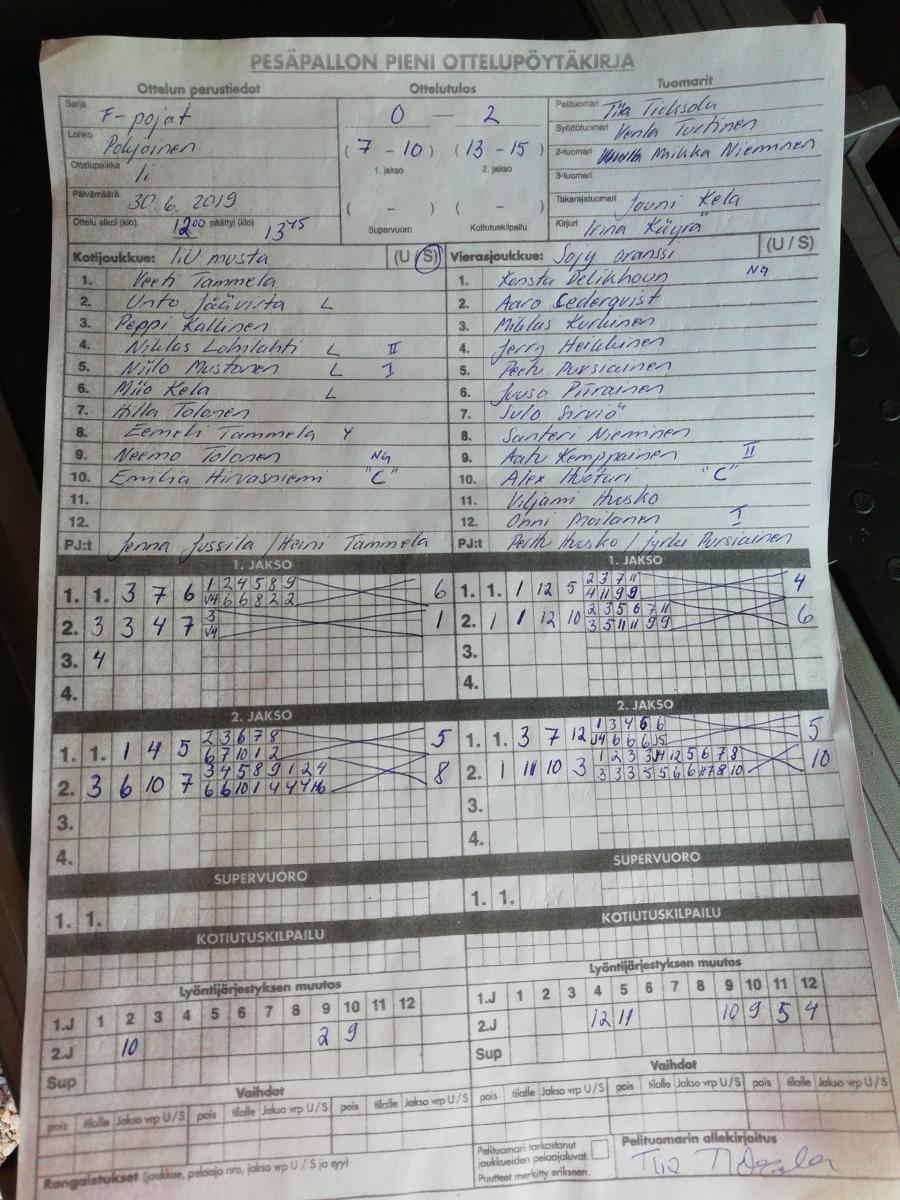 PESÄPALLON PIENI OTTELUPÖYTÄKIRJA
Ottelun perustiedot
Ottelutulos
Tuomarit
Sarja F-pojat
Lohko Pohjoinen
Ottelupaikka Ii
Päivämäärä 30.6.2019
Ottelu alkoi (klo) 12 00 päättyi (klo) 13 45
0 — 2
( 7 - 10 ) ( 13 - 15 )
1. jakso 2. jakso
( - ) ( - )
Supervuoro Kotiutuskilpailu
Pelituomari Tiia Tieksola
Syöttötuomari Venla Turtinen
2-tuomari Miikka Nieminen
3-tuomari
Takarajatuomari Jouni Kela
Kirjuri Irina Käyrä
Kotijoukkue: IiU musta (U / S)
1. Veeti Tammela
2. Unto Jäävirta L
3. Peppi Kallinen
4. Niklas Lohilahti L II
5. Niilo Mustonen L I
6. Miio Kela L
7. Hilla Tolonen
8. Eemeli Tammela Y
9. Neemo Tolonen Ng
10. Emilia Hirvasniemi "C"
11.
12.
PJ:t Jenna Jussila / Heini Tammela
Vierasjoukkue: Sojy oranssi (U / S)
1. Konsta Delikhoun Ng
2. Aaro Cederqvist
3. Miklas Kurkinen
4. Jerry Heikkinen
5. Peetu Pursiainen
6. Juuso Piirainen
7. Julo Sirviö
8. Santeri Nieminen
9. Aatu Kemppainen II
10. Alex Huoturi "C"
11. Viljami Husko
12. Onni Moilanen I
PJ:t Perttu Husko / Jyrki Pursiainen
1. JAKSO
1. 1. 3 7 6 1 2 4 5 8 9 6
V4 6 6 8 2 2
2. 3 3 4 7 3 1
V4
3. 4
4.
1. JAKSO
1. 1. 1 12 5 2 3 7 11 4
4 11 9 9
2. 1 1 12 10 2 3 5 6 7 11 6
3 5 11 11 9 9
3.
4.
2. JAKSO
1. 1. 1 4 5 2 3 6 7 8 5
6 7 10 1 2
2. 3 6 10 7 3 4 5 8 9 1 2 4 8
6 6 10 1 4 4
3.
4.
2. JAKSO
1. 1. 3 7 12 1 3 4 6 6 5
V4 6 6 6
2. 1 11 10 3 1 2 3 3 12 5 6 7 8 10
3 3 3 5 5 6 6 11 7 8 10
3.
4.
SUPERVUORO
1. 1.
SUPERVUORO
1. 1.
KOTIUTUSKILPAILU
KOTIUTUSKILPAILU
Lyöntijärjestyksen muutos
1.J 1 2 3 4 5 6 7 8 9 10 11 12
2.J 10 2 9
Sup
Lyöntijärjestyksen muutos
1.J 1 2 3 4 5 6 7 8 9 10 11 12
2.J 12 11 10 9 5 4
Sup
Vaihdot
pois tilalle Jakso vrp U / S pois tilalle Jakso vrp U / S pois tilalle Jakso vrp U / S
Vaihdot
pois tilalle Jakso vrp U / S pois tilalle Jakso vrp U / S pois tilalle Jakso vrp U / S
Rangaistukset (joukkue, pelaaja nro, jakso vrp U / S ja syy)
Pelituomari tarkastanut
joukkueiden pelaajaluvat.
Puutteet merkitty erikseen.
Pelituomarin allekirjoitus